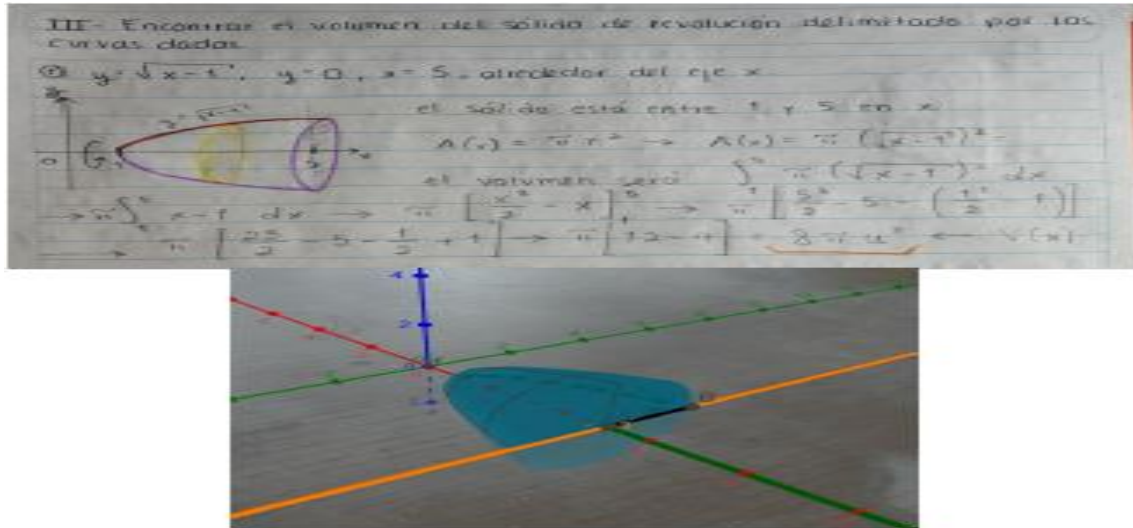 III- Encontrar el volumen del sólido de revolución delimitado por las
curvas dadas
y=√x-1, y=0, x=5. alrededor del eje x
y=√x-1
el sólido está entre 1 y 5 en x
0
A(x) = π r² → A(x) = π (√x-1)²
el volumen será ∫ π (√x-1)² dx
→ π ∫ x-1 dx → π [x²/2 - x] → π [5²/2 - 5 - (1²/2 - 1)]
→ π [25/2 - 5 - 1/2 + 1] → π [12-4] = 8πu³ ← V(x)
4
2